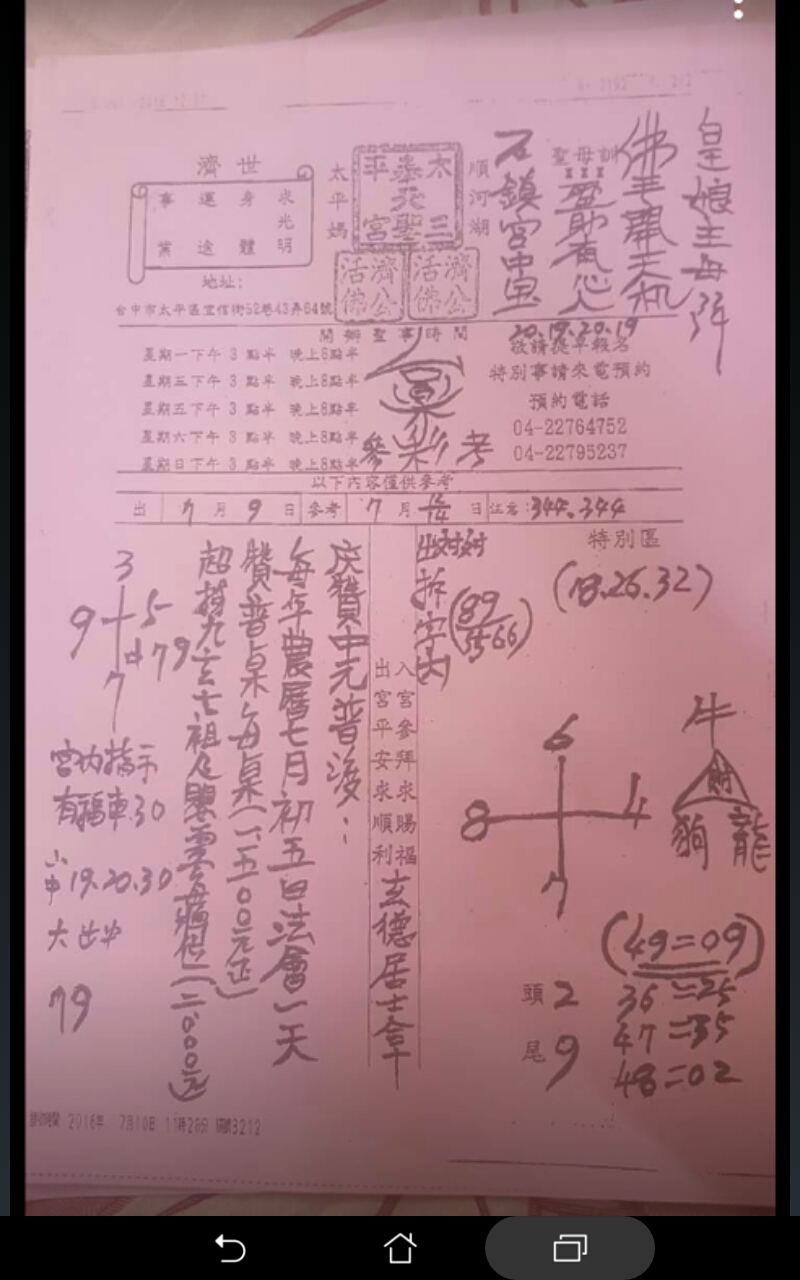 皇娘主母降
佛手開天机
聖母訓
順河湖
太平媽
太三
泰天聖
平宮
濟公活佛
濟公活佛
濟世
求光明
身體
運途
事業
地址:
台中市太平區宜信街52巷43弄64號
開辦聖事時間
20.19.20.19
敬請提早報名
特別事請來電預約
預約電話
04-22764752
04-22795237
星期一下午 3 點半 晚上6點半
星期三下午 3 點半 晚上8點半
星期五下午 3 點半 晚上8點半
星期六下午 3 點半 晚上8點半
星期日下午 3 點半 晚上8點半
參彩考
以下內容僅供參考
出 7 月 9 日 參考 7 月 日 注意:344.344
特別區
(18.26.32)
拆字內
89
5566
入宮參拜求賜福
出宮平安求順利
玄德居士拿
慶贊中元普渡:
每年農曆七月初五日法會一天
贊普桌每桌(一、五00元正)
超拔九玄七祖及嬰靈
(二、000元)
3
9 5
7
79
宮內指示
有福車.30
小中 19.20.30
大出中
79
6
8 4
7
牛
財
狗 龍
(49=09)
頭 2
36=25
尾 9
47=35
48=02
2016年 7月10日 11時28分
3212